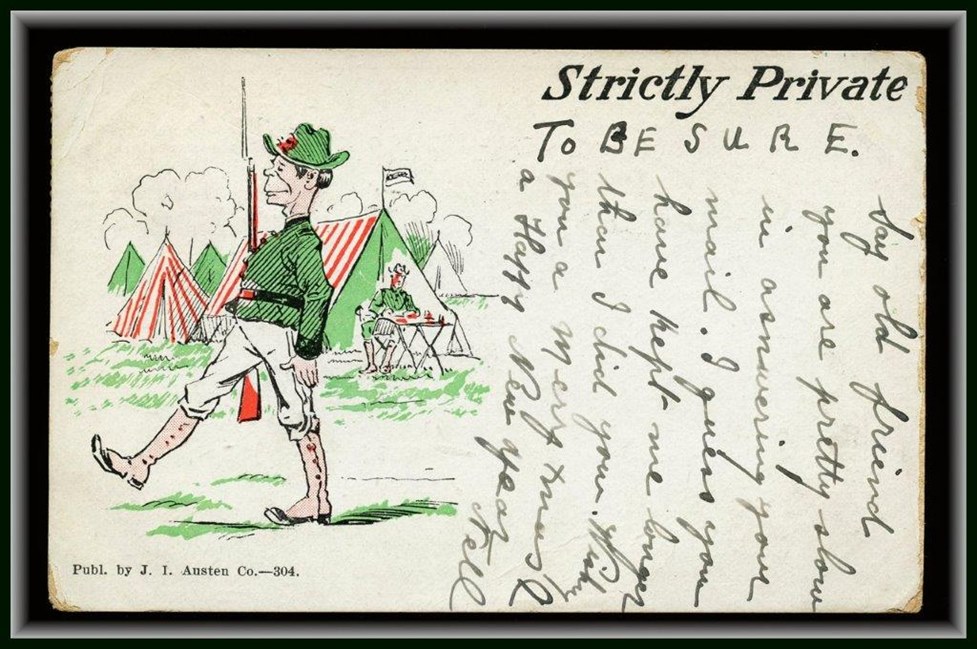 Strictly Private
To BE SURE.
Say old freind
you are pretty slow
in answering your
mail. I guess you
have kept me longer
than I did you. Wishing
you a Mery Xmas &
a Happy New Year
Nell
Publ. by J. I. Austen Co.—304.